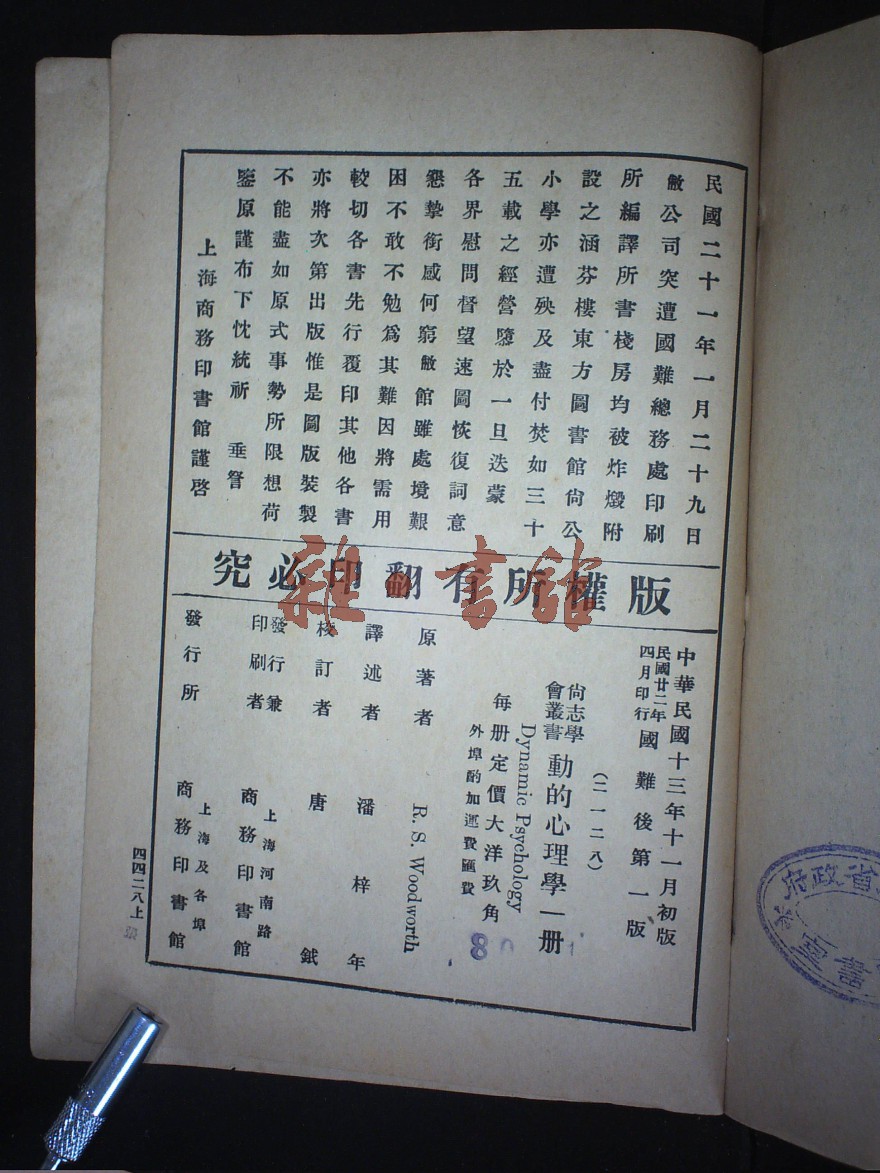 民國二十一年一月二十九日
敝公司突遭國難總務處印刷
所編譯所書棧房均被炸燬附
設之涵芬樓東方圖書館尙公
小學亦遭殃及盡付焚如三十
五載之經營隳於一旦迭蒙
各界慰問督望速圖恢復詞意
懇摯銜感何窮敝館雖處境艱
困不敢不勉爲其難因將需用
較切各書先行覆印其他各書
亦將次第出版惟是圖版裝製
不能盡如原式事勢所限想荷
鑒原謹布下忱統祈 垂詧
上海商務印書館謹啓
版權所有翻印必究
中華民國十三年十一月初版
民國廿二年
四月印行
國難後第一版
(二一二八)
尙志學
會叢書
動的心理學一册
Dynamic Psychology
每册定價大洋玖角
外埠酌加運費匯費
原著者 R. S. Woodworth
譯述者 潘梓年
校訂者 唐鉞
發行兼
印刷者
上海河南路
商務印書館
發行所
上海及各埠
商務印書館
四四二八上
雜書館
8
府政省